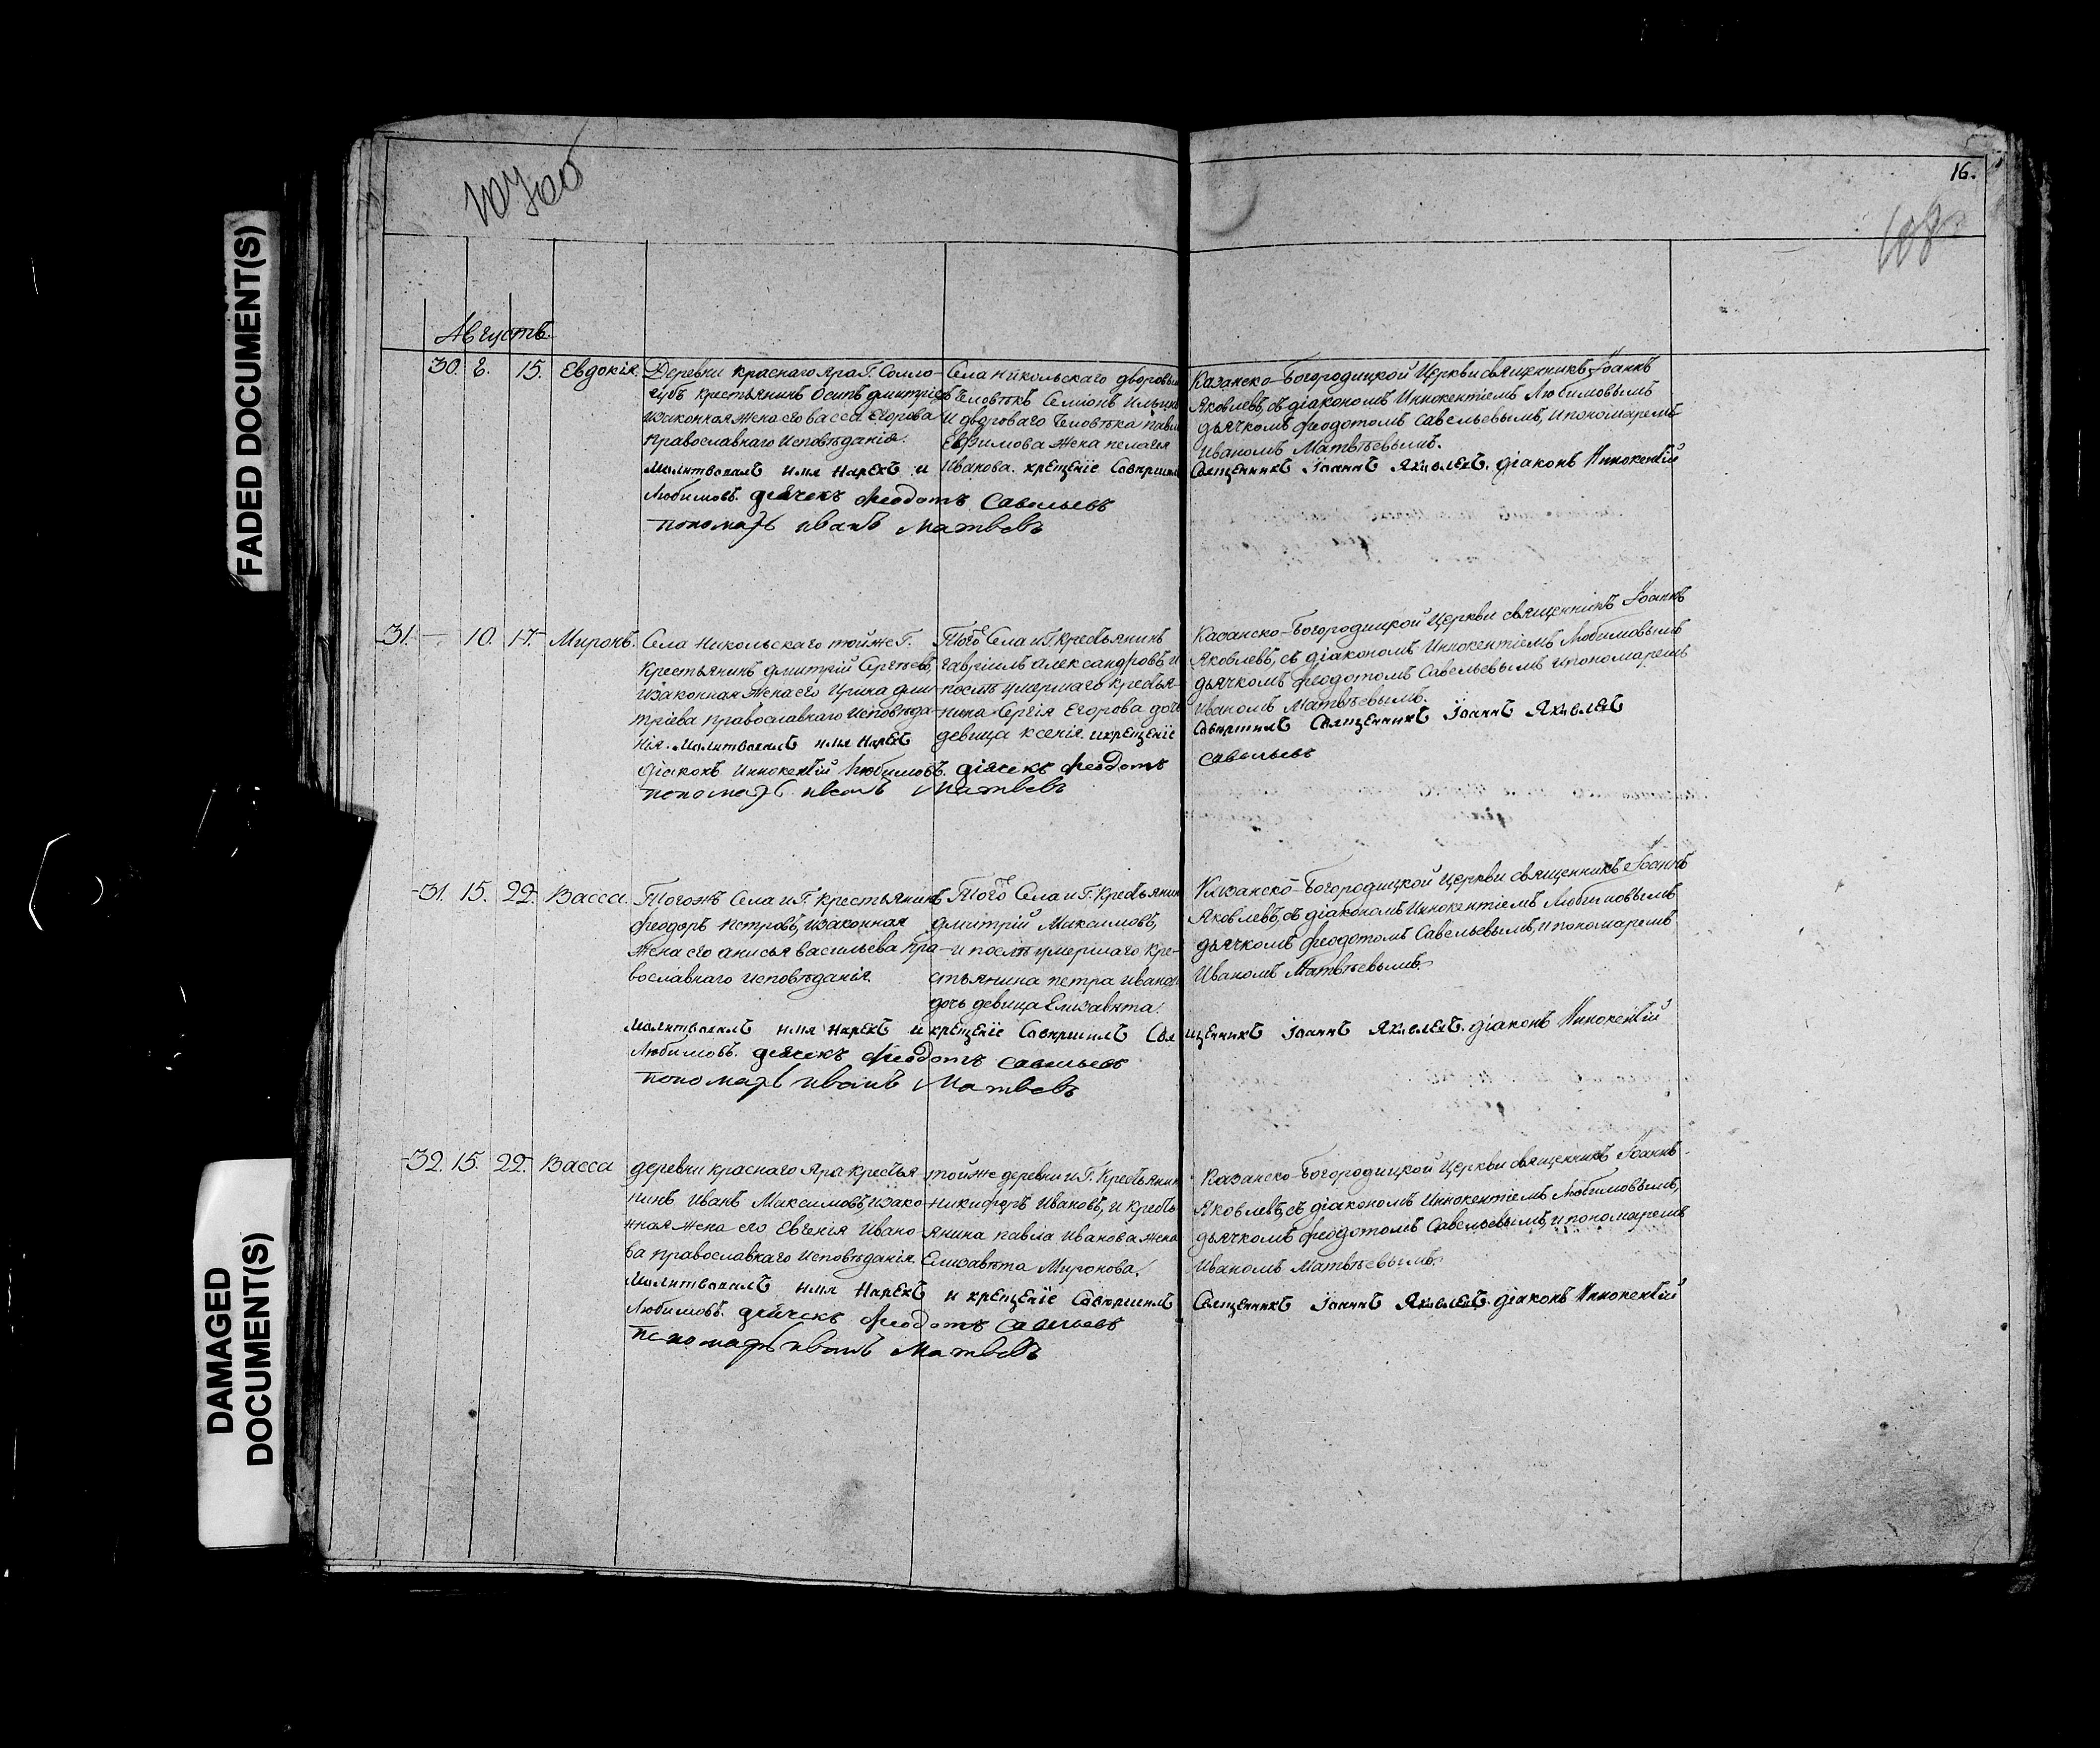 FADED DOCUMENT(S)
DAMAGED
DOCUMENT(S)
107об
16.
108
Августъ.
30. 8. 15. Евдокія.
Деревни Краснаго Яра Г. Солло-
губъ крестьянинъ Осипъ Дмитріевъ
и законная жена его Васса Егорова
Православнаго Исповѣданія.
Села Никольскаго дворовый
человѣкъ Семіонъ Ильинъ
и двороваго человѣка Павла
Ефимова жена Пелагея
Иванова.
Казанско-Богородицкой Церкви священникъ Іоаннъ
Яковлевъ, съ діакономъ Иннокентіемъ Любимовымъ
дьячкомъ Феодотомъ Савельевымъ, и пономаремъ
Иваномъ Матвѣевымъ.
Молитвовалъ имя нарекъ и крещеніе совершилъ Священникъ Іоаннъ Яковлевъ. діаконъ Иннокентій
Любимовъ. дьячекъ Феодотъ Савельевъ
пономарь Иванъ Матвевъ
31. 10. 17. Миронъ.
Села Никольскаго тойже Г.
Крестьянинъ Дмитрій Сергѣевъ,
и законная жена его Ирина Дми-
тріева Православнаго Исповѣда-
нія.
Того Села и Г. Крестьянинъ
Гавріилъ Александровъ и
послѣ умершаго крестья-
нина Сергія Егорова дочь
девица Ксенія.
Казанско-Богородицкой Церкви священникъ Іоаннъ
Яковлевъ, съ діакономъ Иннокентіемъ Любимовымъ
дьячкомъ Феодотомъ Савельевымъ и пономаремъ
Иваномъ Матвѣевымъ.
Молитвовалъ имя нарекъ и крещеніе совершилъ Священникъ Іоаннъ Яковлевъ
діаконъ Иннокентій Любимовъ. діячекъ Феодотъ Савельевъ
пономарь Иванъ Матвевъ
31. 15. 22. Васса.
Тогожъ Села и Г. Крестьянинъ
Феодоръ Петровъ, и законная
жена его Анисья Васильева Пра-
вославнаго Исповѣданія.
Того Села и Г. Крестьянинъ
Дмитрій Максимовъ,
и послѣ умершаго Кре-
стьянина Петра Иванова
дочь девица Елизавѣта.
Казанско-Богородицкой Церкви священникъ Іоаннъ
Яковлевъ, съ діакономъ Иннокентіемъ Любимовымъ
дьячкомъ Феодотомъ Савельевымъ, и пономаремъ
Иваномъ Матвѣевымъ.
Молитвовалъ имя нарекъ и крещеніе совершилъ Священникъ Іоаннъ Яковлевъ. діаконъ Иннокентій
Любимовъ. дьячекъ Феодотъ Савельевъ
пономарь Иванъ Матвевъ
32. 15. 22. Васса
деревни Краснаго Яра Крестья-
нинъ Иванъ Максимовъ, и зако-
нная жена его Евгенія Ивано-
ва Православнаго Исповѣданія.
тойже деревни и Г. Крестьянинъ
Никифоръ Ивановъ, и Кресть-
янина Павла Иванова жена
Елизавѣта Миронова.
Казанско-Богородицкой Церкви священникъ Іоаннъ
Яковлевъ, съ діакономъ Иннокентіемъ Любимовымъ,
дьячкомъ Феодотомъ Савельевымъ, и пономаремъ
Иваномъ Матвѣевымъ.
Молитвовалъ имя нарекъ и крещеніе совершилъ Священникъ Іоаннъ Яковлевъ. діаконъ Иннокентій
Любимовъ. дьячекъ Феодотъ Савельевъ
пономарь Иванъ Матвевъ